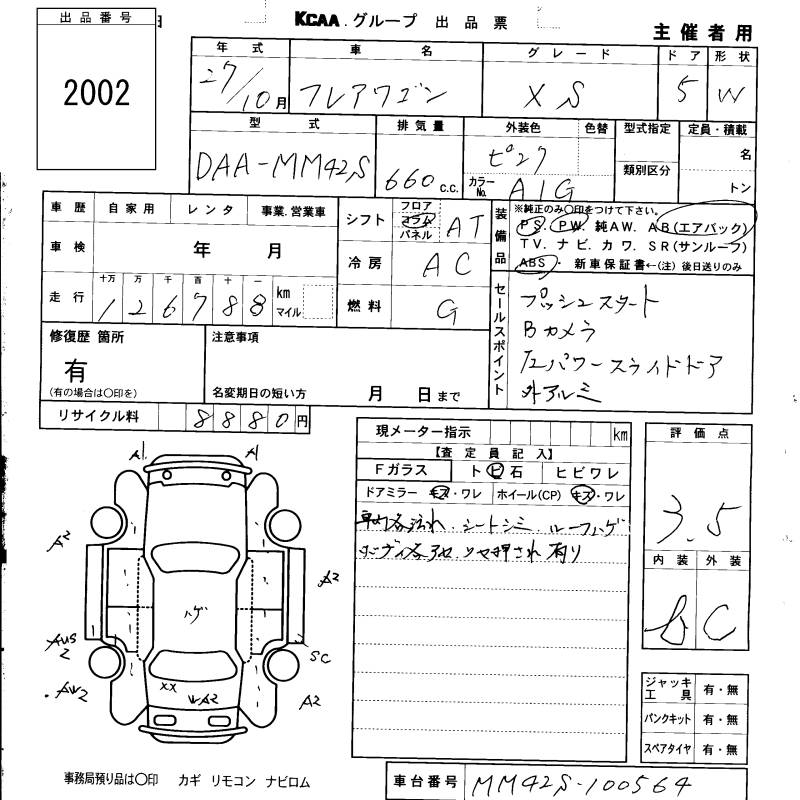 出品番号
2002
KCAA.グループ 出品票
主催者用
年式 車名 グレード ドア 形状
27/10月 フレアワゴン XS 5 W
型式 排気量 外装色 色替 型式指定 定員・積載
DAA-MM42S 660 c.c. ピンク 名
類別区分
カラーNo. A1G トン
車歴 自家用 レンタ 事業.営業車
車検 年 月
走行 十万 万 千 百 十 一
126788 km マイル
シフト フロア コラム パネル AT
冷房 AC
燃料 G
装備品
※純正のみ○印をつけて下さい。
PS. PW. 純AW. AB(エアバック)
TV. ナビ. カワ. SR(サンルーフ)
ABS・新車保証書←(注)後日送りのみ
セールスポイント
プッシュスタート
Bカメラ
1/2パワースライドドア
外アルミ
修復歴 箇所
有
(有の場合は○印を)
注意事項
名変期日の短い方 月 日まで
リサイクル料 8880円
現メーター指示 km
【査定員記入】
Fガラス トビ石 ヒビワレ
ドアミラー キズ・ワレ ホイール(CP) キズ・ワレ
車内各汚れ.シートシミ.ルーフハゲ
ボディ各アセ.ツヤ押され有り
評価点
3.5
内装 外装
b C
A1 A1
A2
A2
ハゲ
SC
AW2
A2
XX
WA2
ジャッキ工具 有・無
パンクキット 有・無
スペアタイヤ 有・無
事務局預り品は○印 カギ リモコン ナビロム
車台番号 MM42S-100564